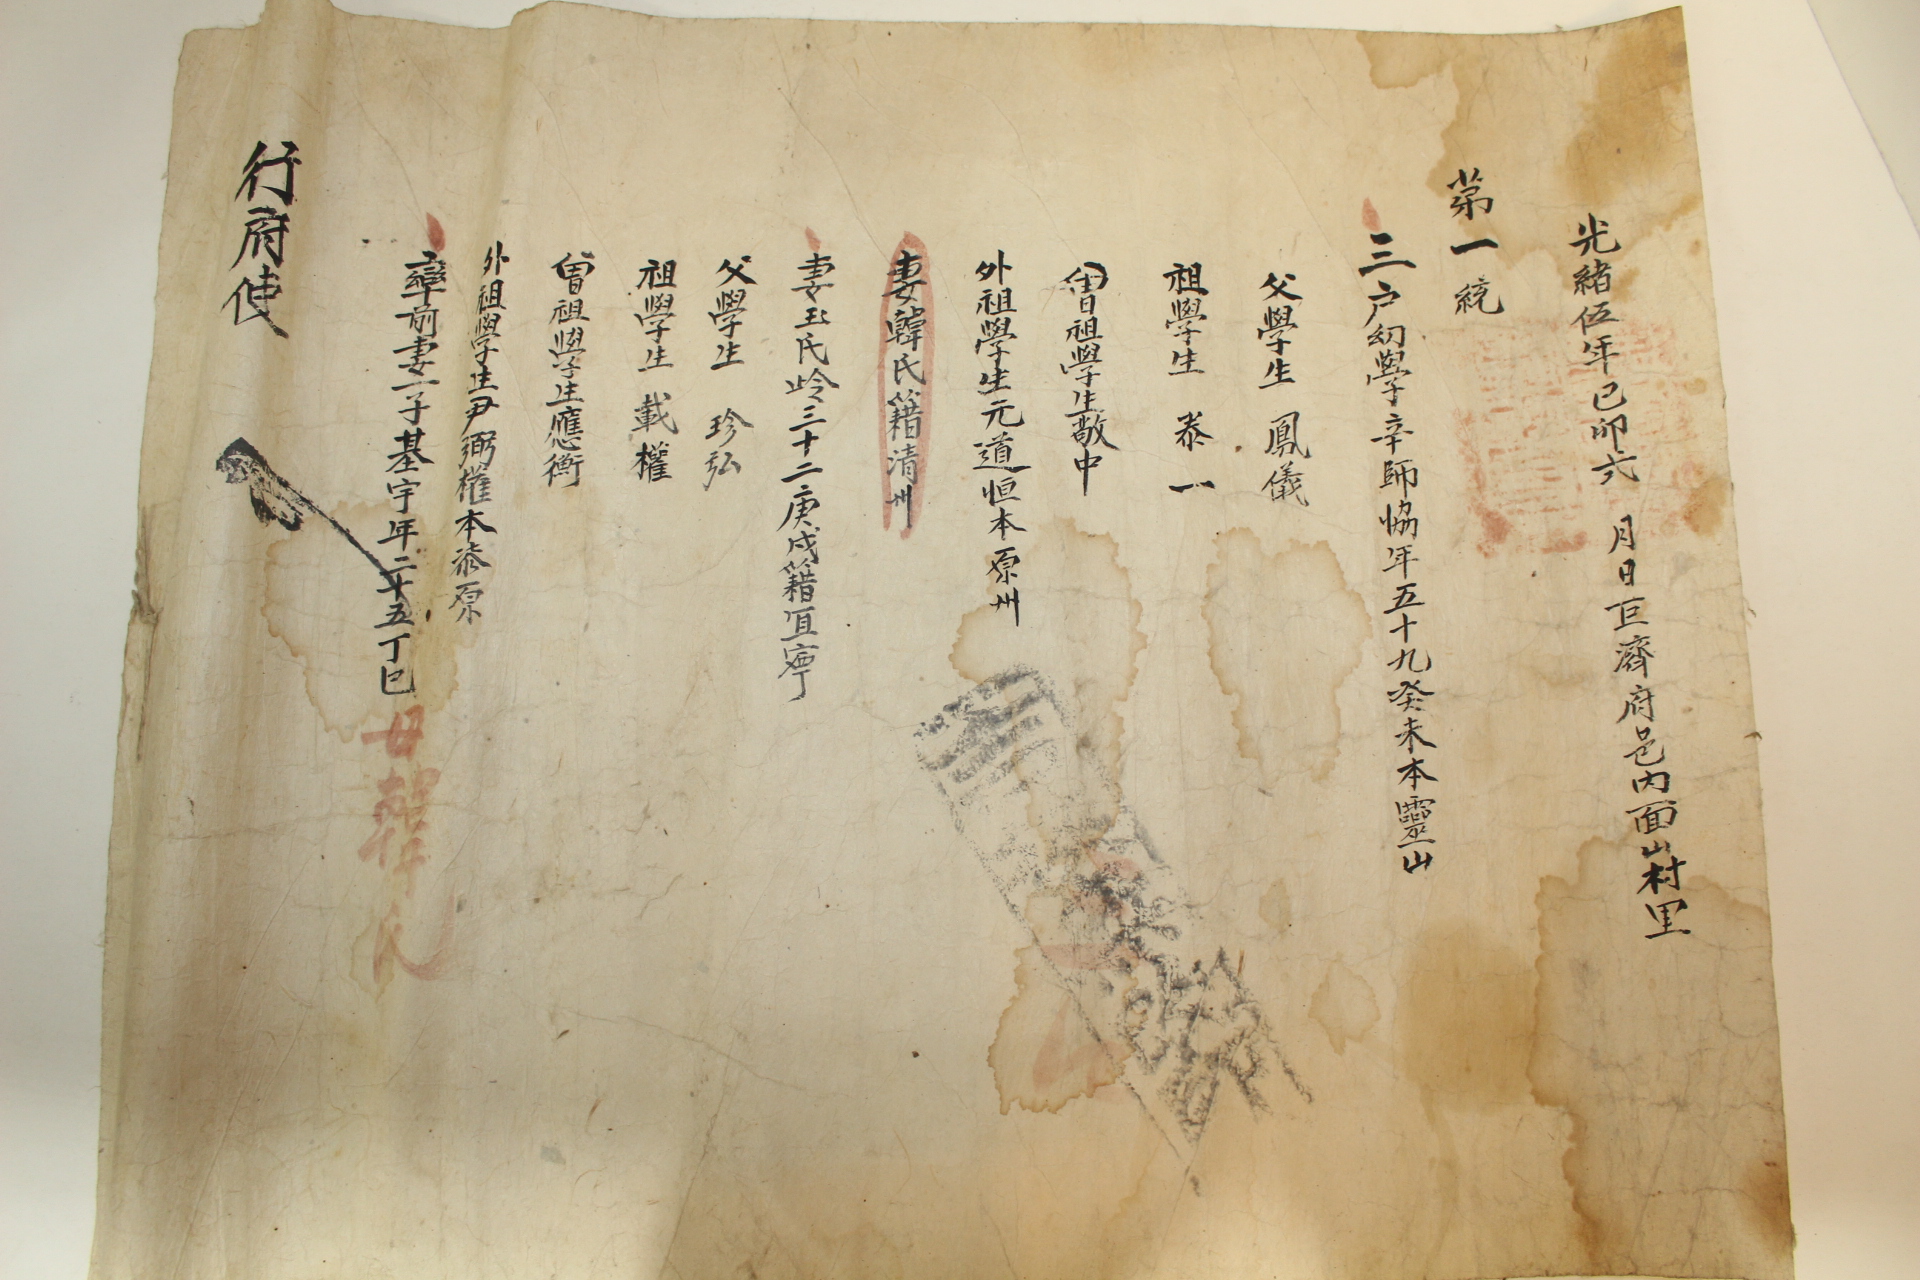 光緖伍年己卯六　月日巨濟府邑內面山村里
第一統
三戶幼學辛師協年五十九癸未本靈山
父學生　鳳儀
祖學生　泰一
曾祖學生敬中
外祖學生元道恒本原州
妻韓氏籍淸州
妻玉氏齡三十二庚戌籍宜寧
父學生　珍弘
祖學生　載權
曾祖學生應衡
外祖學生尹弼權本漆原
率前妻子基宇年二十五丁巳
母韓氏
行府使